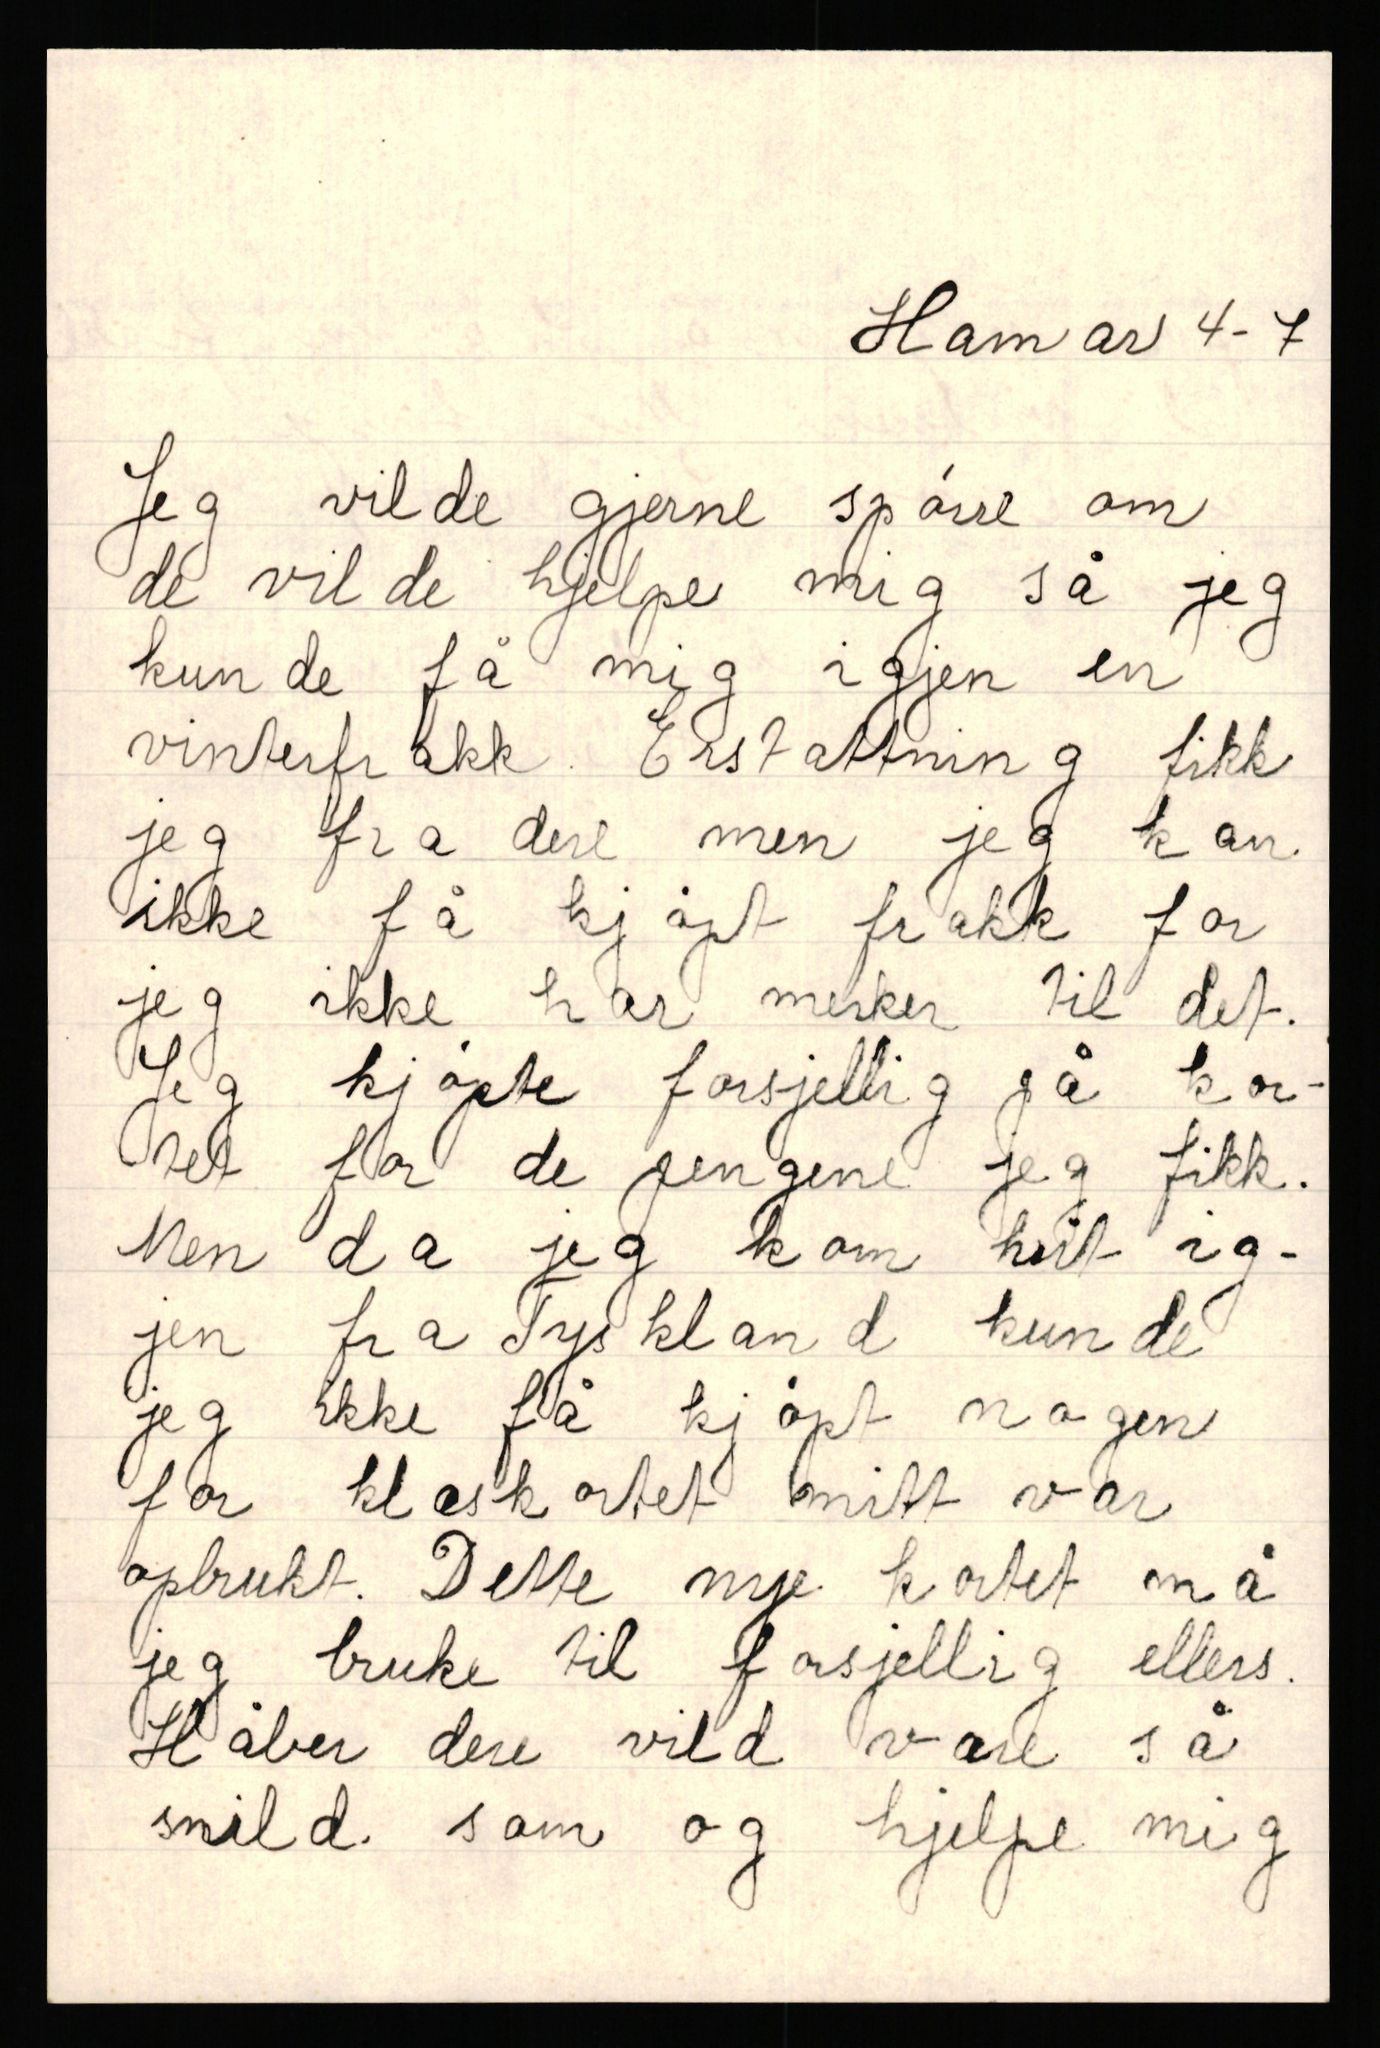 Hamar 4-7
Jeg vilde gjerne spórre om
de vilde hjelpe mig så jeg
kunde få mig igjen en
vinterfrakk. Erstattning fikk
jeg fra dere men jeg kan
ikke få kjópt frakk for
jeg ikke har merker til det.
Jeg kjópte forsjellig på kor-
tet for de pengene jeg fikk.
Men da jeg kom hit ig-
jen fra Tyskland kunde
jeg ikke få kjópt nogen
for kleskortet mitt var
opbrukt. Dette nye kortet må
jeg bruke til forsjellig ellers.
Håber dere vild vare så
snild som og hjelpe mig